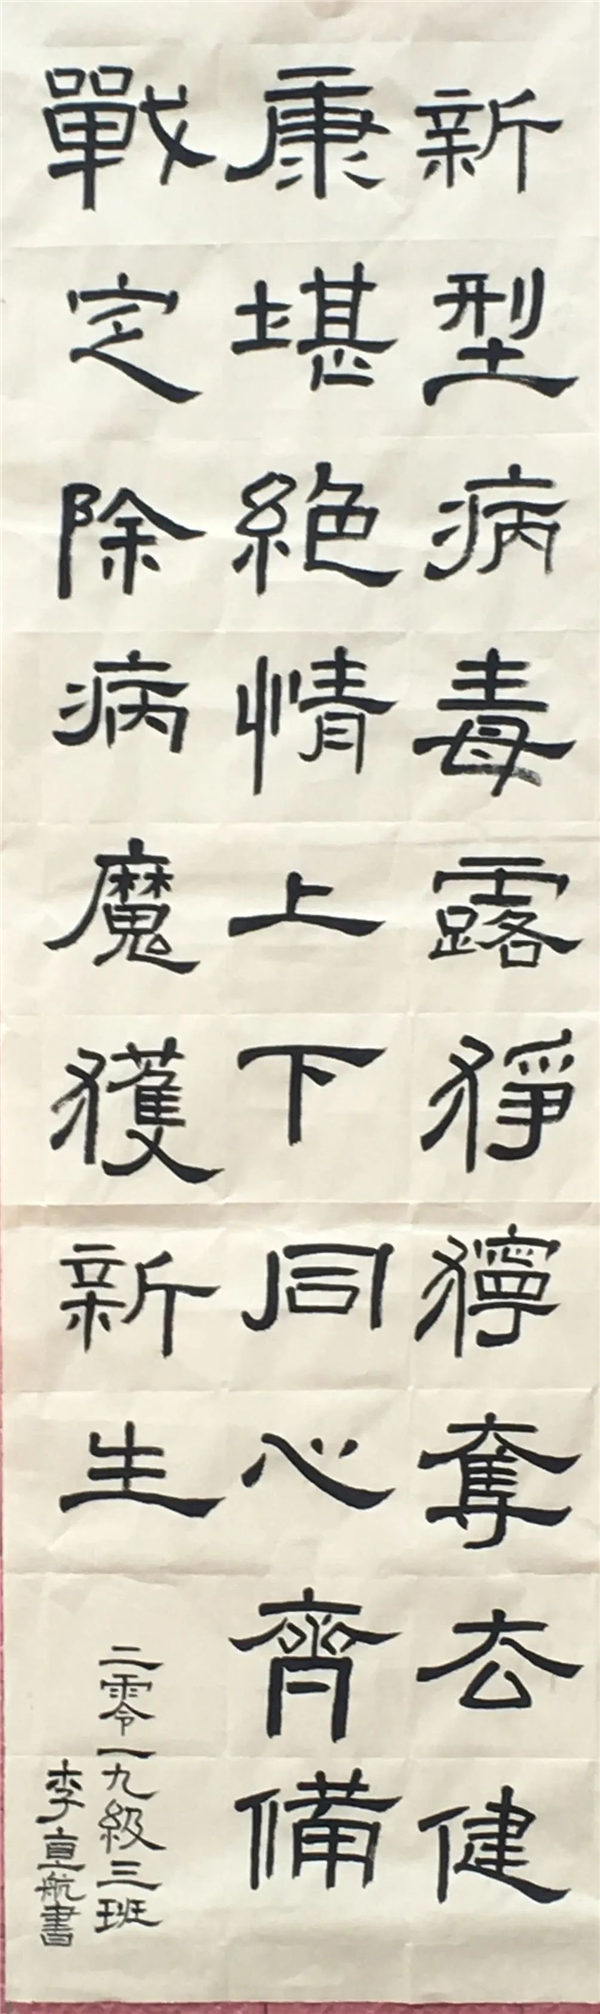 新型病毒露猙獰奪去健
康堪絕情上下同心齊備
戰定除病魔獲新生
二零一九級三班
李直航書